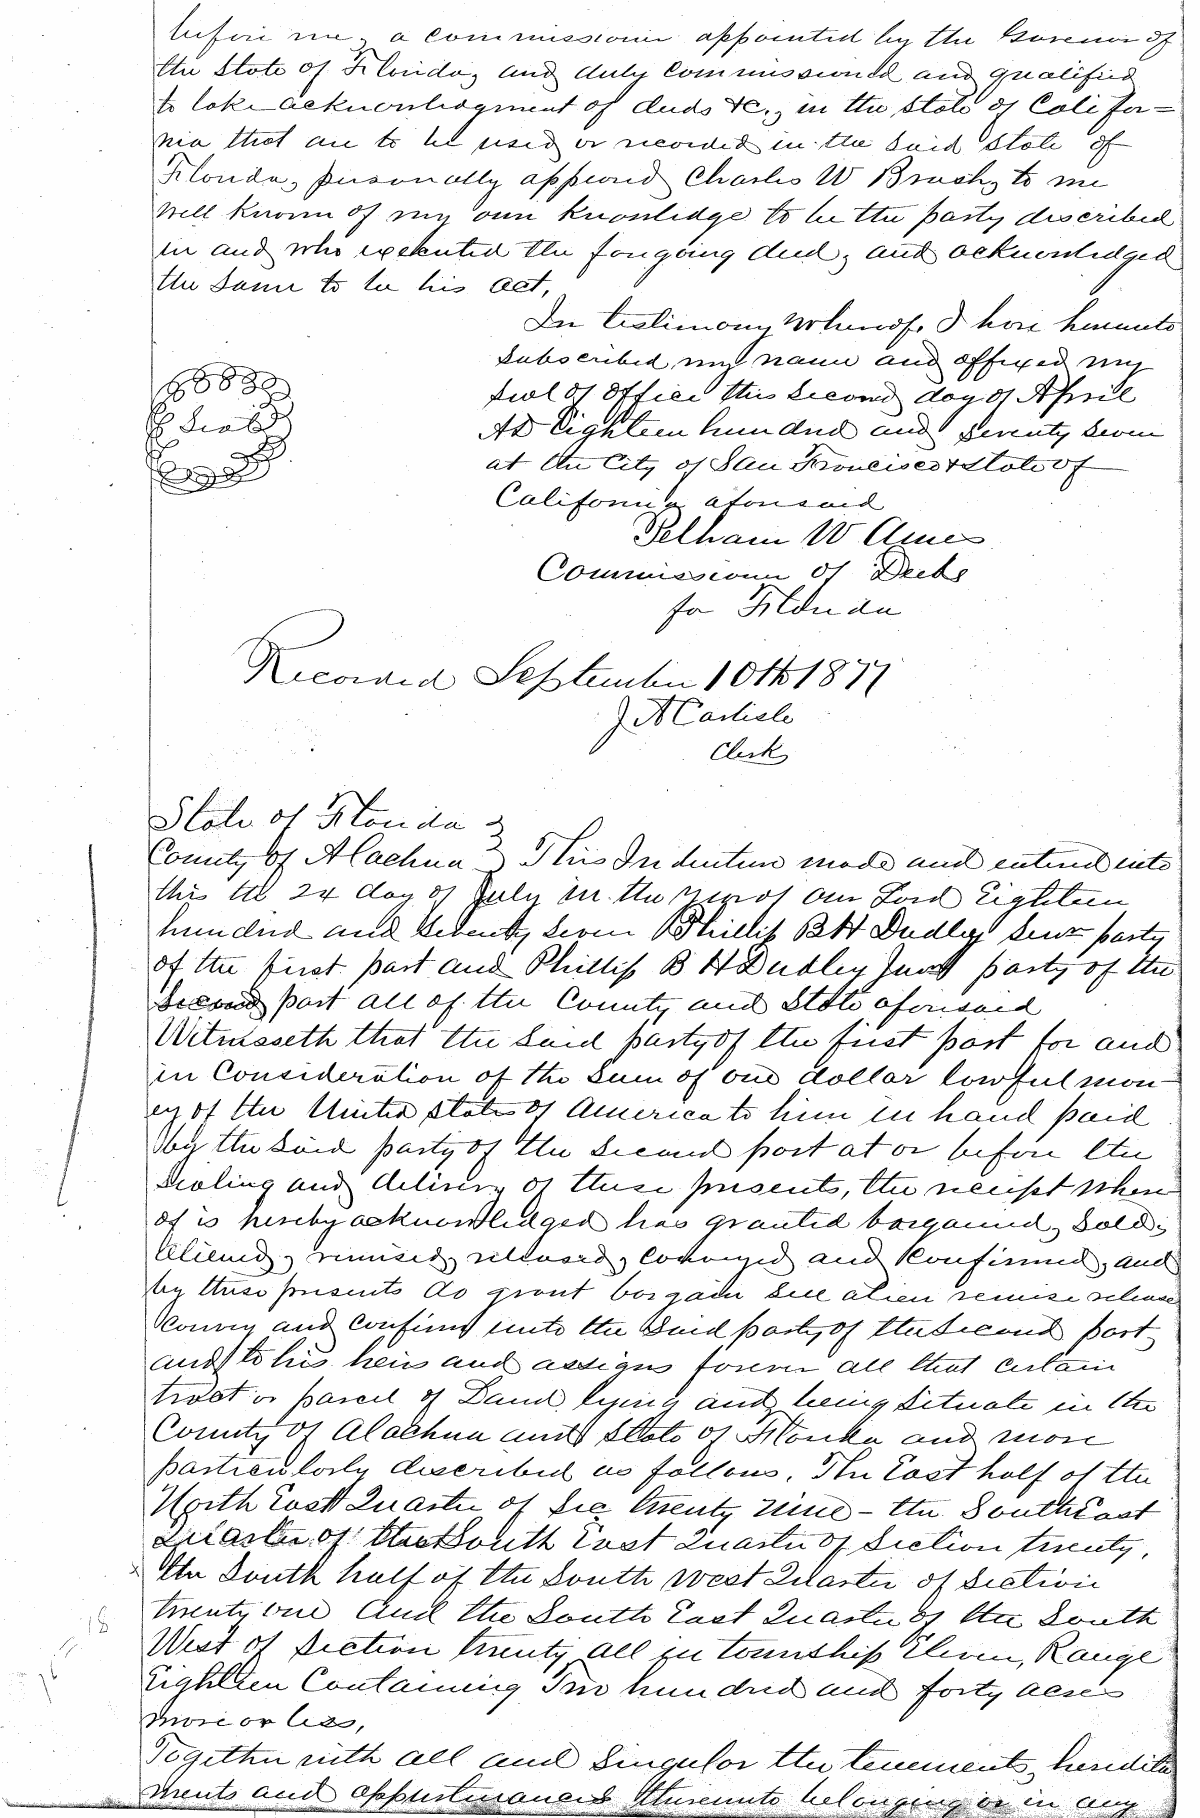 before me, a commissioner appointed by the Governor of
the State of Florida, and duly commissioned and qualified
to take acknowledgment of deeds &c., in the State of Califor=
nia that are to be used or recorded in the said State of
Florida, personally appeared Charles W Brush, to me
well known of my own knowledge to be the party discribed
in and who executed the foregoing deed, and acknowledged
the same to be his act,
In testimony whereof, I have hereunto
subscribed my name and affixed my
seal of office this second day of April
AD Eighteen hundred and seventy seven
at the City of San Francisco & State of
California aforesaid
Seal
Pelham W Ames
Commissioner of Deeds
for Florida
Recorded September 10th 1877
J A Carlisle
Clerk
State of Florida
County of Alachua This Indenture made and entered into
this the 24 day of July in the year of our Lord Eighteen
hundred and seventy seven Phillip B H Dudley Senr party
of the first part and Phillip B H Dudley Junr party of the
second part all of the County and State aforesaid
Witnesseth that the said party of the first part for and
in Consideration of the sum of one dollar lawful mon
ey of the United States of America to him in hand paid
by the said party of the second part at or before the
sealing and delivery of these presents, the receipt where
of is hereby acknowledged has granted bargained, sold,
aliened, remised, released, conveyed and Confirmed, and
by these presents do grant bargain sell alien remise release
convey and confirm unto the said party of the second part
and to his heirs and assigns forever all that certain
tract or parcel of Land lying and being situate in the
County of Alachua and State of Florida and more
particularly described as follows. The East half of the
North East Quarter of Sec twenty nine - the South East
Quarter of the South East Quarter of Section twenty,
the South half of the South west Quarter of Section
twenty one and the South East Quarter of the South
West of Section twenty all in township Eleven, Range
Eighteen Containing Two hundred and forty acres
more or less,
Together with all and singular the tenements, heredita
ments and appurtenances thereunto belonging or in any